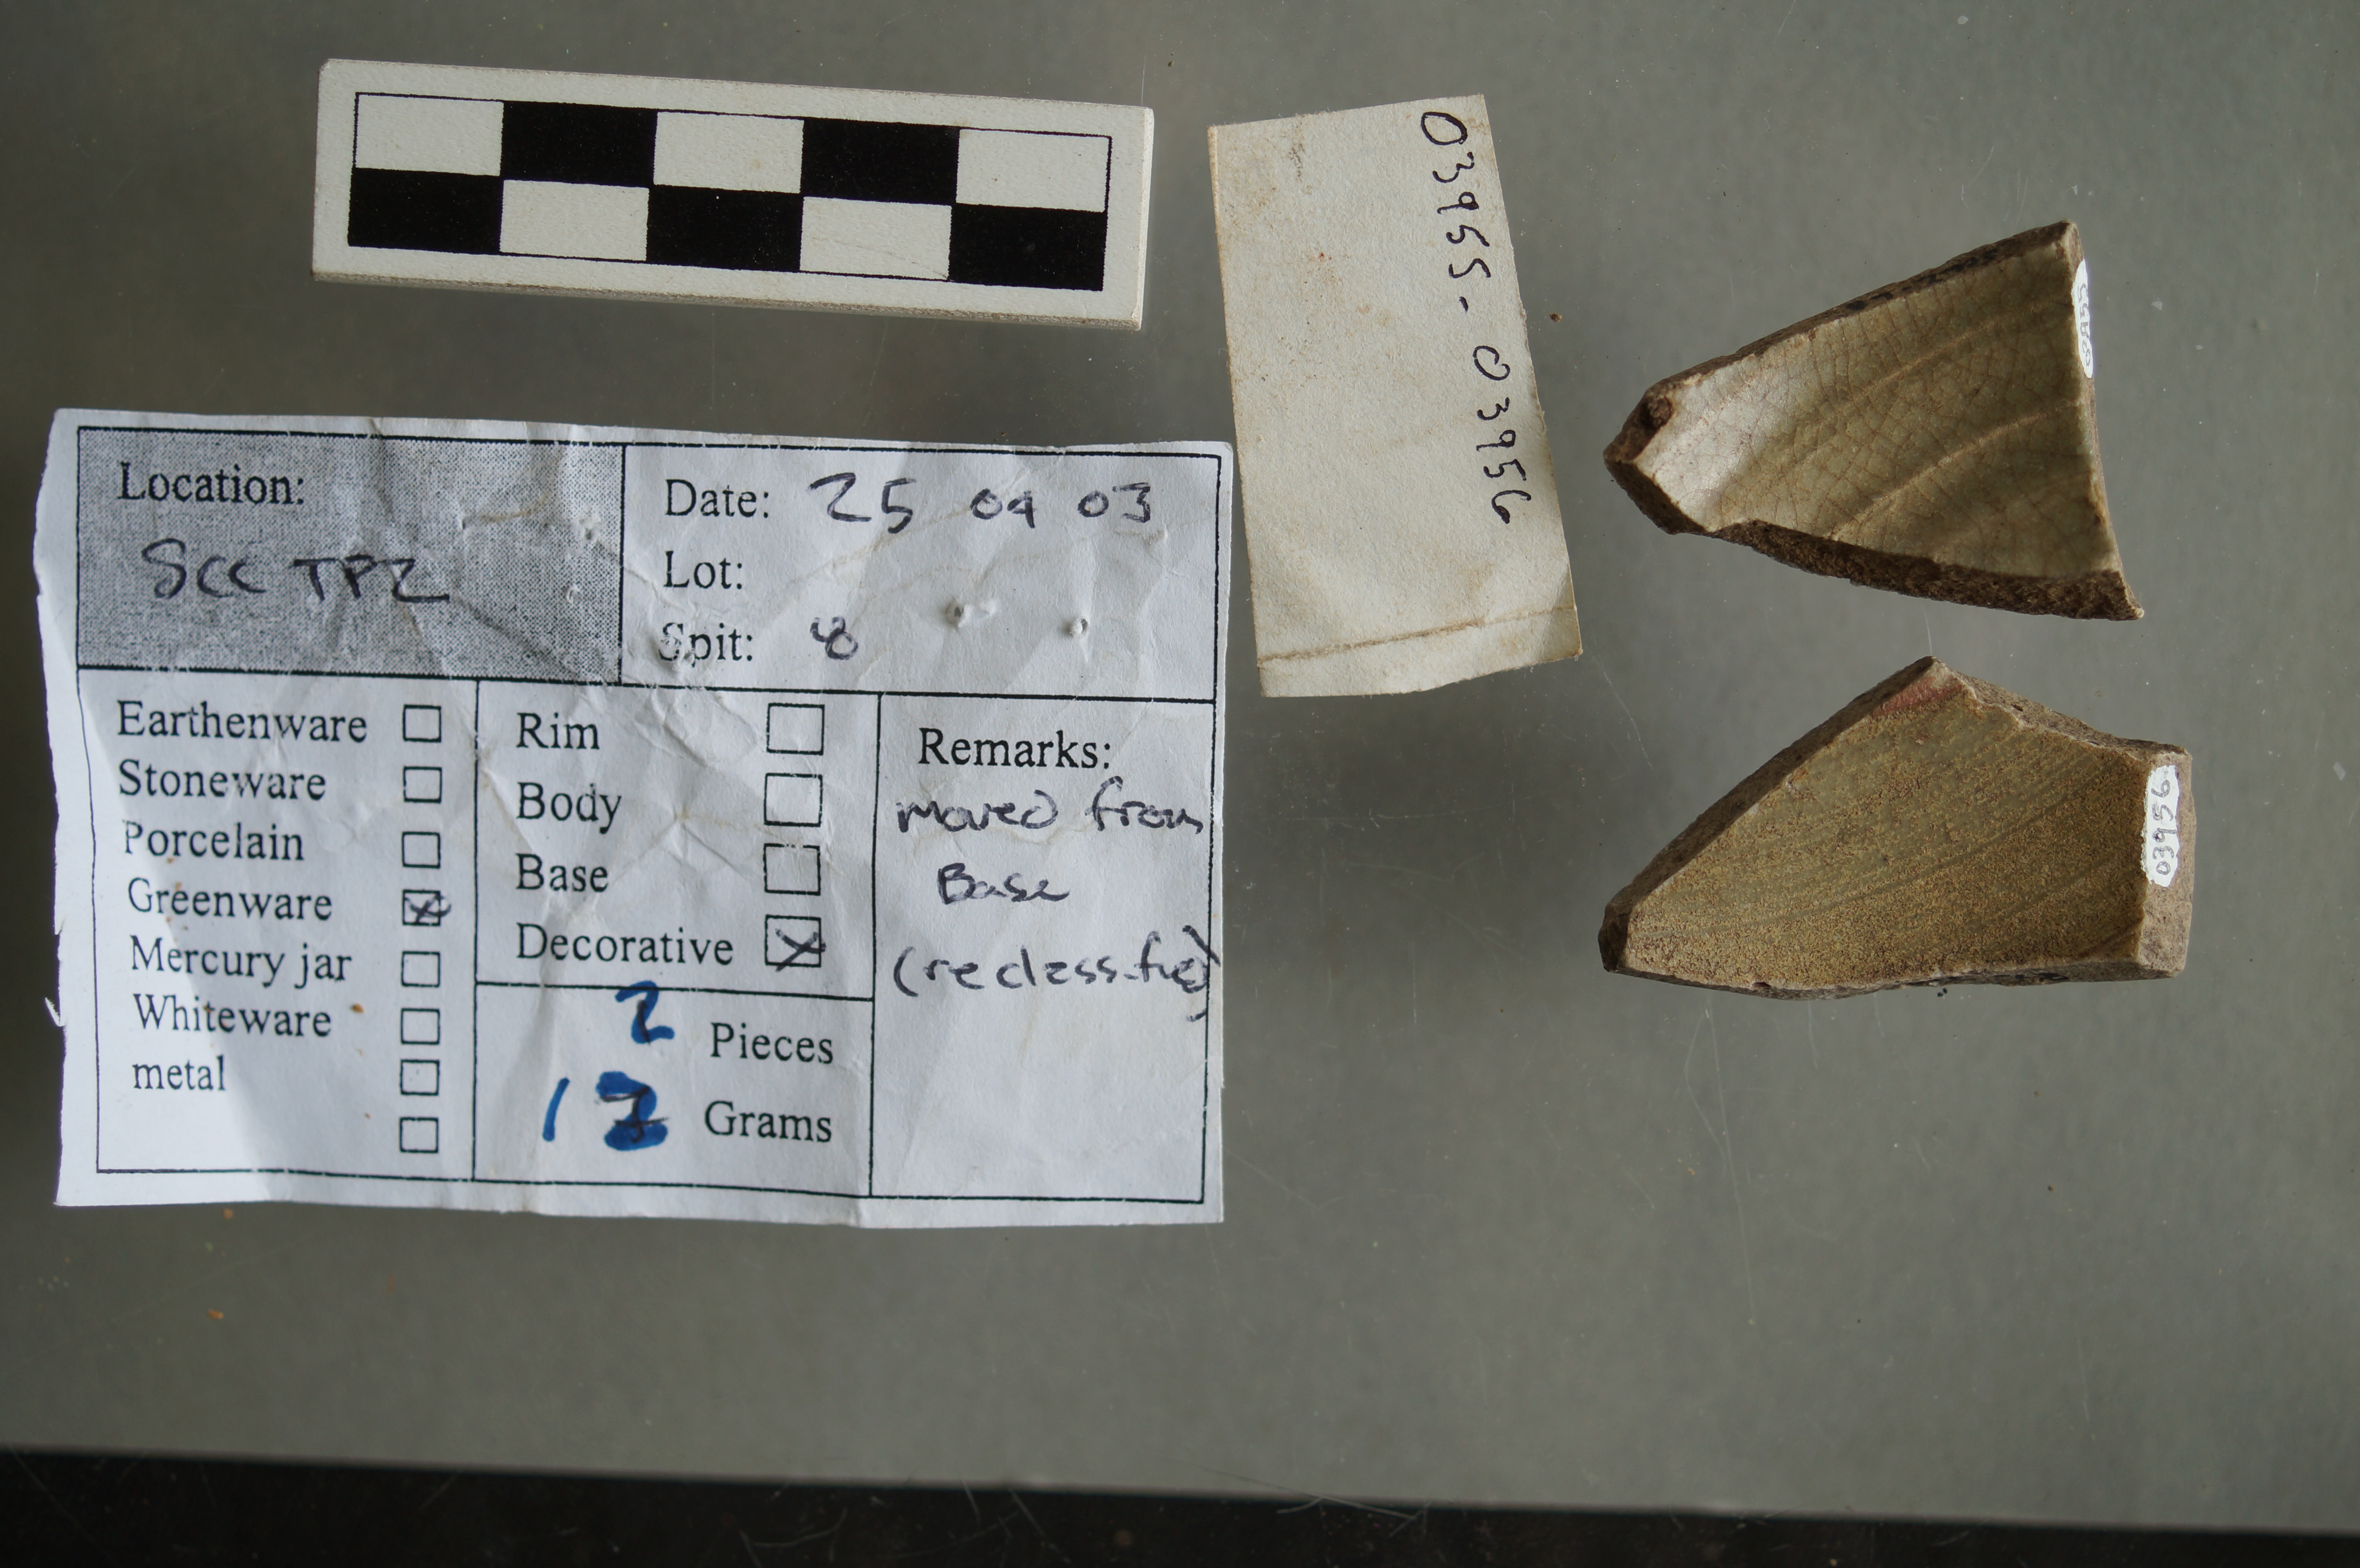 Location:
SCC TP2
Date: 25 04 03
Lot:
Spit: 8
Earthenware
Stoneware
Porcelain
Greenware
Mercury jar
Whiteware
metal
Rim
Body
Base
Decorative
2 Pieces
Grams
Remarks:
moved from
Base
(reclassify)
03955-03956
03956
03955